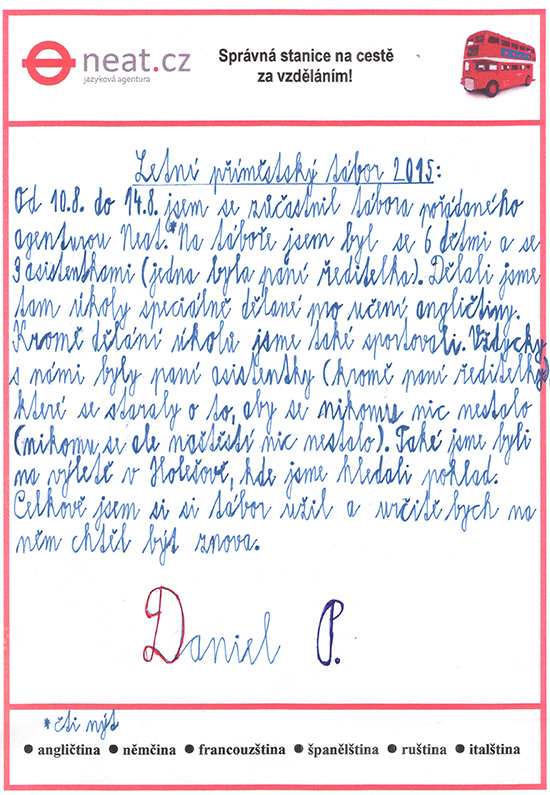 neat.cz
jazyková agentura
Správná stanice na cestě
za vzděláním!
Letní příměstský tábor 2015:
Od 10.8. do 14.8. jsem se zúčastnil tábora pořádaného
agenturou Neat.* Na táboře jsem byl se 6 dětmi a se
3 asistentkami (jedna byla paní ředitelka). Dělali jsme
tam úkoly speciálně dělané pro učení angličtiny.
Kromě dělání úkolů jsme také sportovali. Vždycky
s námi byly paní asistentky (kromě paní ředitelky)
které se staraly o to, aby se nikomu nic nestalo
(nikomu se ale naštěstí nic nestalo). Také jsme byli
na výletě v Holešově, kde jsme hledali poklad.
Celkově jsem si si tábor užil a určitě bych na
něm chtěl být znova.
Daniel P.
*čti nýt
● angličtina ● němčina ● francouzština ● španělština ● ruština ● italština